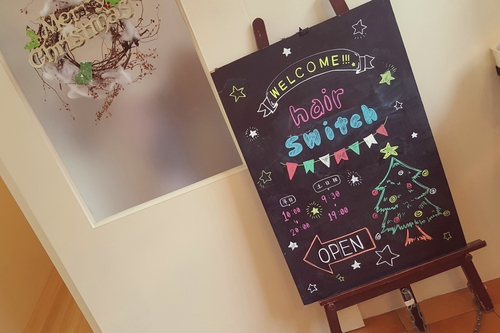 Merry
Christmas
WELCOME!!!
hair
Switch
平日
10:00
~
20:00
土日祝
9:30
~
19:00
OPEN